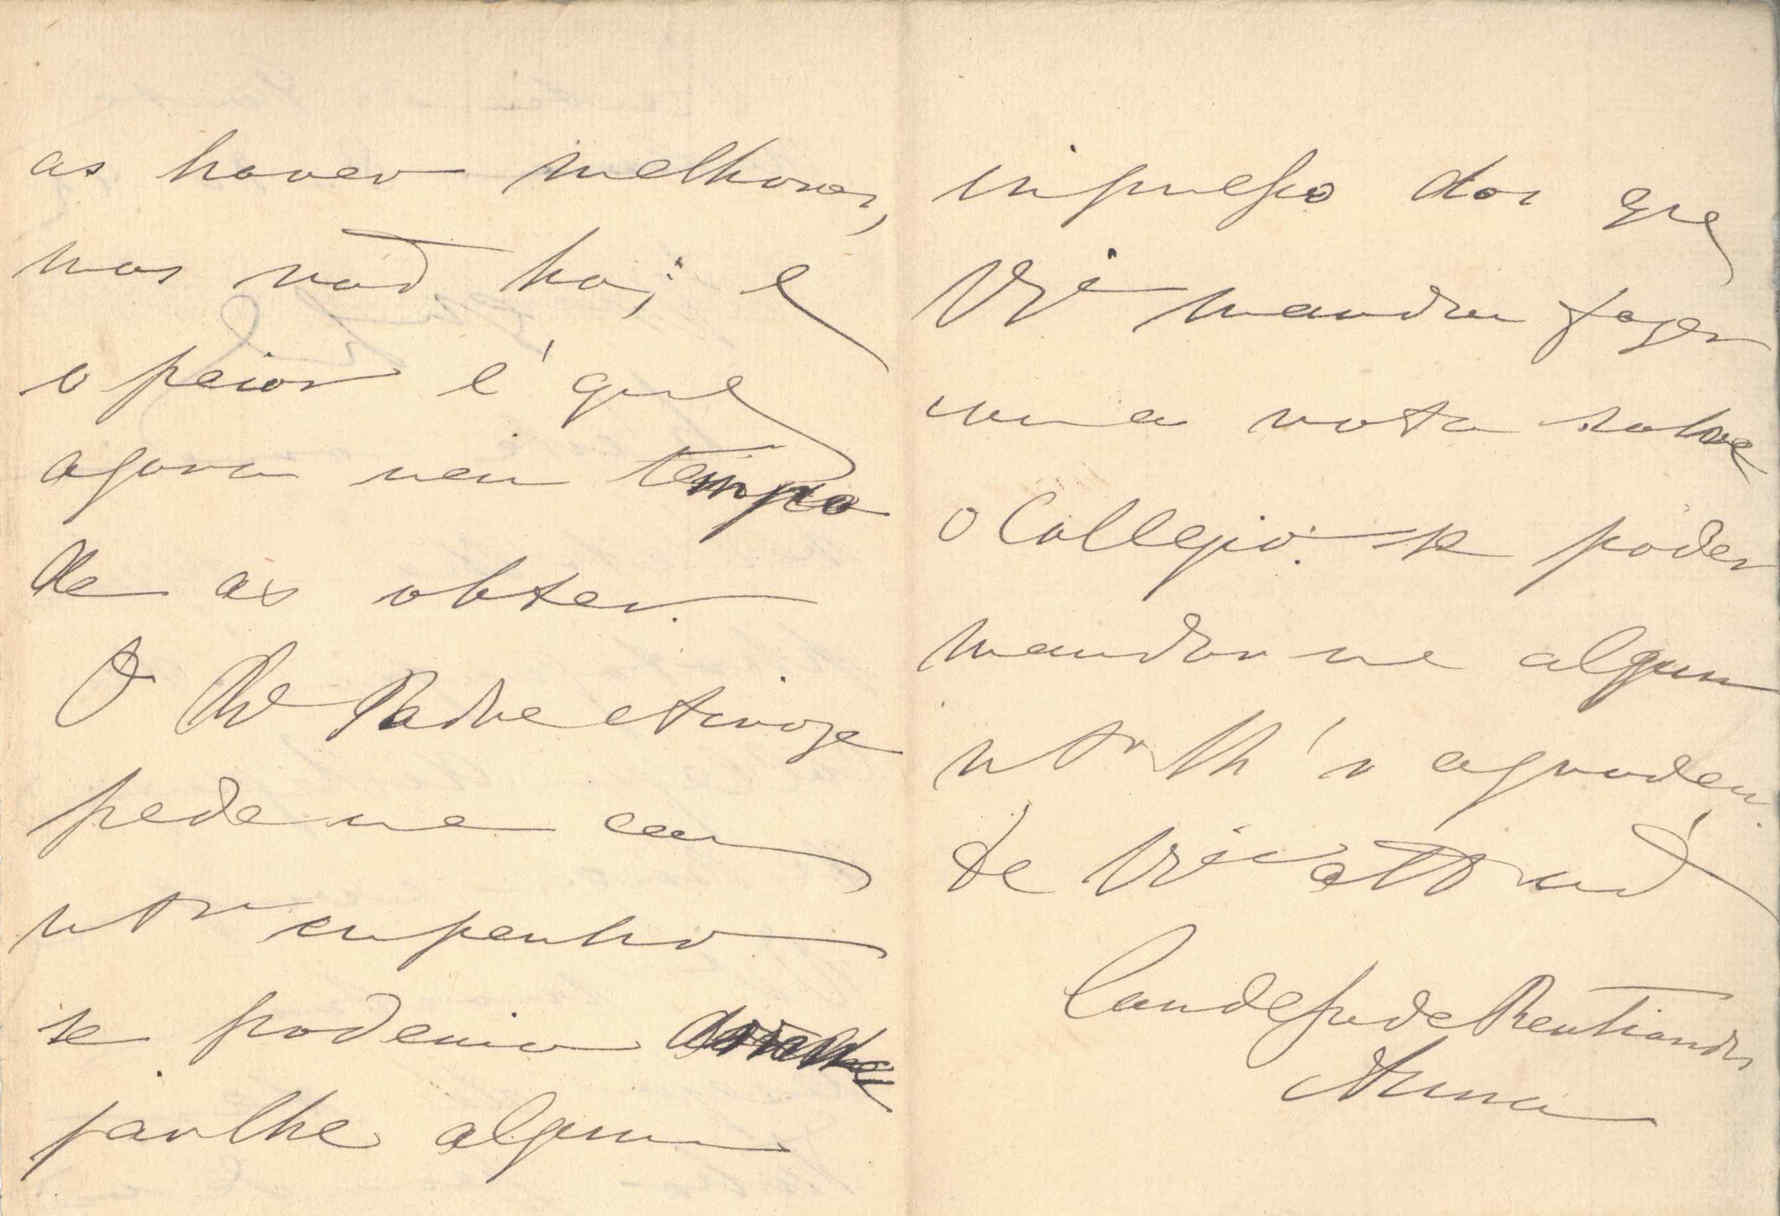 as haver melhores,
mas naõ ha; e
o peior é que
agora nem tempo
de as obter.
O Rdo Padre
pede me com
mto empenho
se poderia
parlhe algum
impresso dos que
VExa mandou fazer
uma nota sobre
o Collegio: se poder
mandar me algum
mto lh'o agradeço
De VExa
Condessa de Penhander
Anna